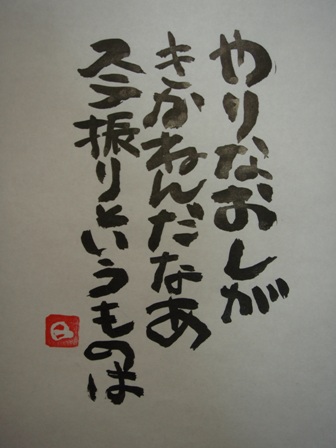 やりなおしが
きかねんだなあ
ステ振りというものは